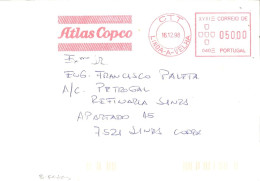 Atlas Copco
C.T.T.
16.12.98
LINDA-A-VELHA
CORREIO DE
05000
PORTUGAL
Exmo Sr
ENG. FRANCISCO PALETA
A/C. PETROGAL
REFINARIA SINES
APARTADO 15
7521 SINES CODEX